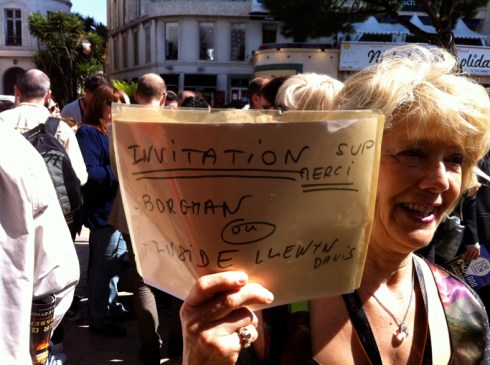 INVITATION SVP
MERCI
- BORGMAN
OU
- INSIDE LLEWYN
DAVIS